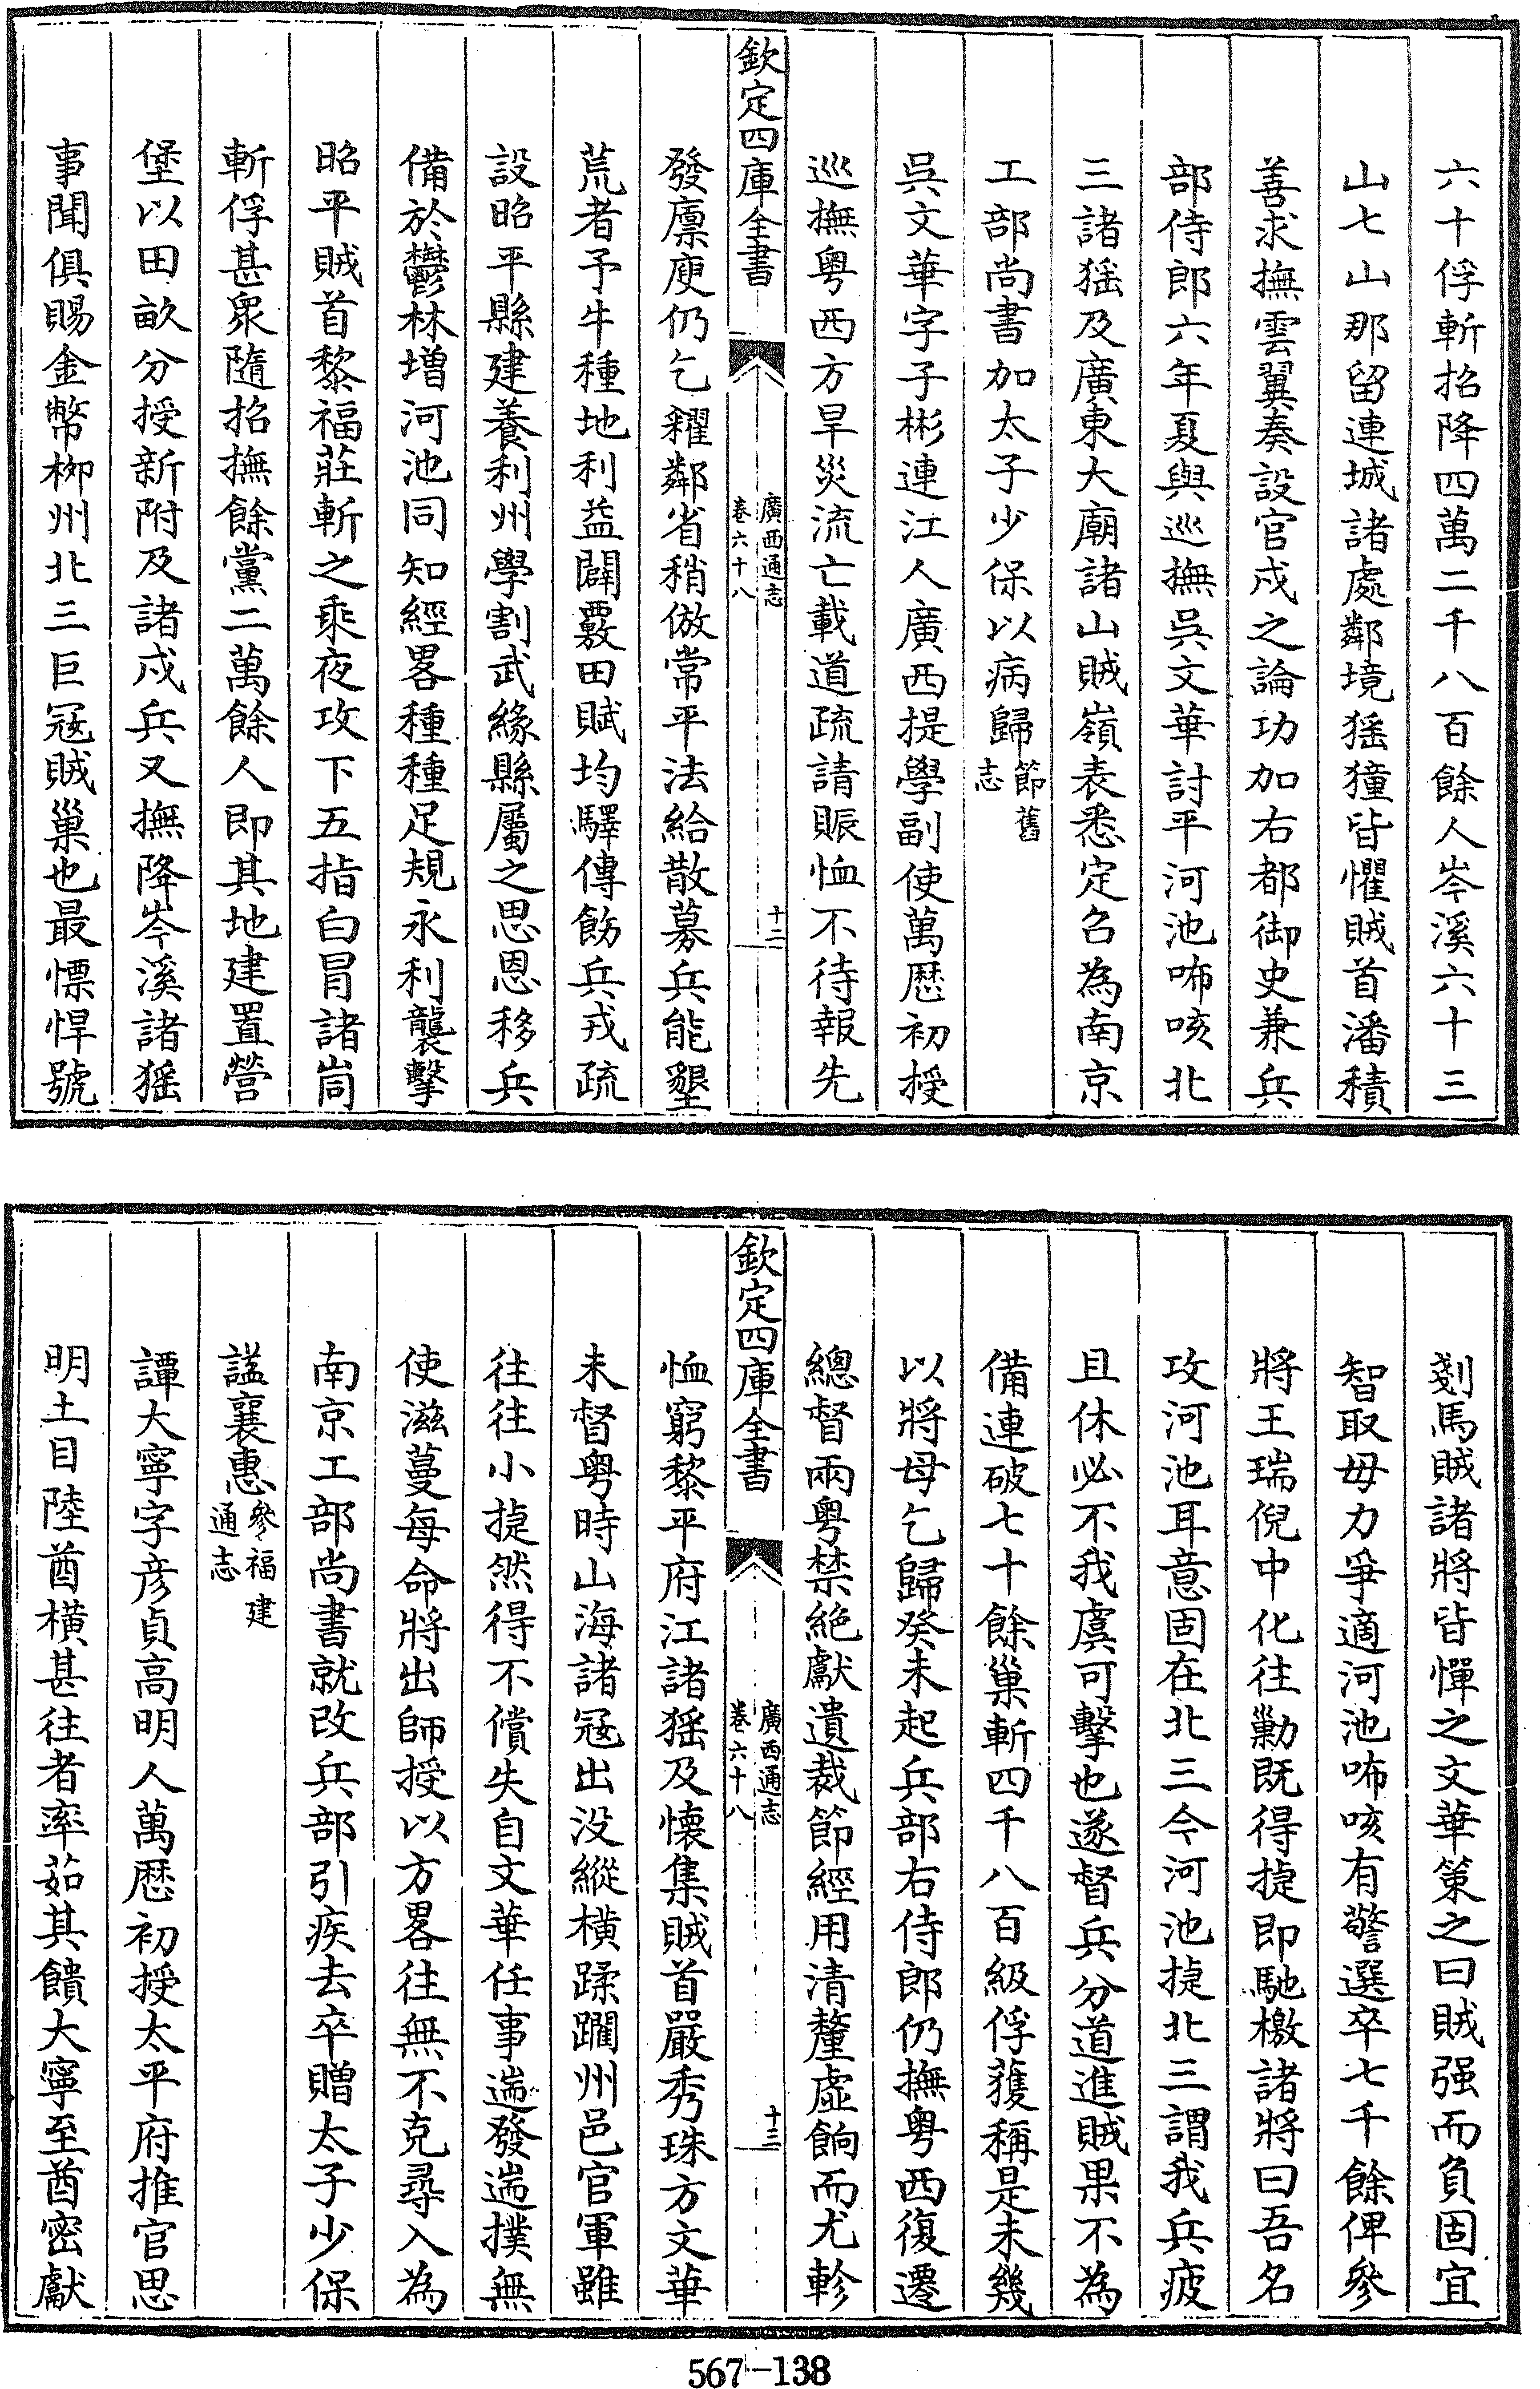 六十俘斬招降四萬二千八百餘人岑溪六十三
山七山那留連城諸處鄰境猺獞皆懼賊首潘積
善求撫雲翼奏設官戍之論功加右都御史兼兵
部侍郎六年夏與巡撫吳文華討平河池咘咳北
三諸猺及廣東大廟諸山賊嶺表悉定召為南京
工部尚書加太子少保以病歸節舊
志
吳文華字子彬連江人廣西提學副使萬歴初授
巡撫粤西方旱災流亡載道疏請賑恤不待報先
欽定四庫全書
廣西通志
卷六十八
十二
發廪庾仍乞糴鄰省稍倣常平法給散募兵能墾
荒者予牛種地利益闢覈田賦均驛傳飭兵戎疏
設昭平縣建養利州學割武緣縣屬之思恩移兵
備於鬱林增河池同知經畧種種足規永利襲擊
昭平賊首黎福莊斬之乘夜攻下五指白冒諸峝
斬俘甚衆隨招撫餘黨二萬餘人即其地建置營
堡以田畝分授新附及諸戍兵又撫降岑溪諸猺
事聞俱賜金幣栁州北三巨冦賊巢也最慓悍號
剗馬賊諸將皆憚之文華策之曰賊强而負固宜
智取毋力爭適河池咘咳有警選卒七千餘俾參
將王瑞倪中化往勦既得捷即馳檄諸將曰吾名
攻河池耳意固在北三今河池捷北三謂我兵疲
且休必不我虞可擊也遂督兵分道進賊果不為
備連破七十餘巢斬四千八百級俘獲稱是未幾
以將母乞歸癸未起兵部右侍郎仍撫粤西復遷
總督兩粤禁絶獻遺裁節經用清釐虛餉而尤軫
欽定四庫全書
廣西通志
卷六十八
十三
恤窮黎平府江諸猺及懷集賊首嚴秀珠方文華
未督粤時山海諸冦出没縱橫蹂躙州邑官軍雖
往往小捷然得不償失自文華任事遄發遄撲無
使滋蔓每命將出師授以方畧往無不克尋入為
南京工部尚書就改兵部引疾去卒贈太子少保
諡襄惠參福建
通志
譚大寧字彦貞高明人萬歴初授太平府推官思
明土目陸酋橫甚往者率茹其饋大寧至酋密獻
567-138